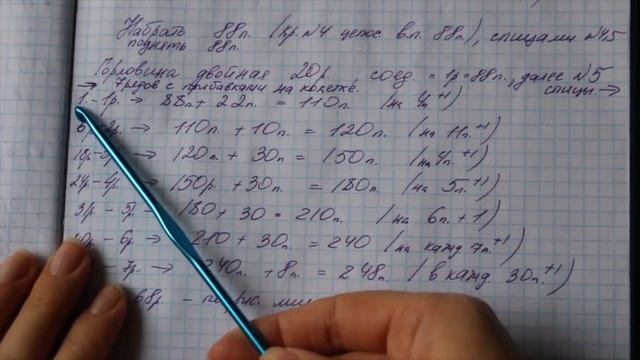 Набрать 88п. (кр. №4 цепос в.п. 88п.), спицами №4.5
поднять 88п.
Горловина двойная 20р., соед. = 1р = 88п., далее №5
→ 7рядов с прибавками на кокетке. спицы. →
1. - 1р. → 88п + 22п. = 110п. (на 4п.+1)
р. → 110п. + 10п. = 120п. (на 11п.+1)
→ 120п. + 30п = 150п. (на 4п.+1)
- 4р. → 150р. + 30п. = 180п. (на 5п.+1)
- 5р - 180 + 30 = 210п. (на 6п. + 1)
- 6р. → 210 + 30п. = 240 (на кажд 7п.+1)
- 7р. → 240п. + 8п. = 248п. (в кажд. 30п.+1)
68р. -